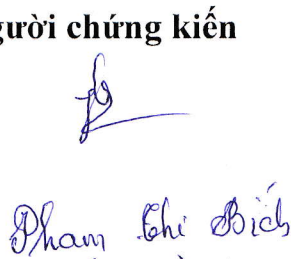 gười chứng kiến
Phạm Thi Bích